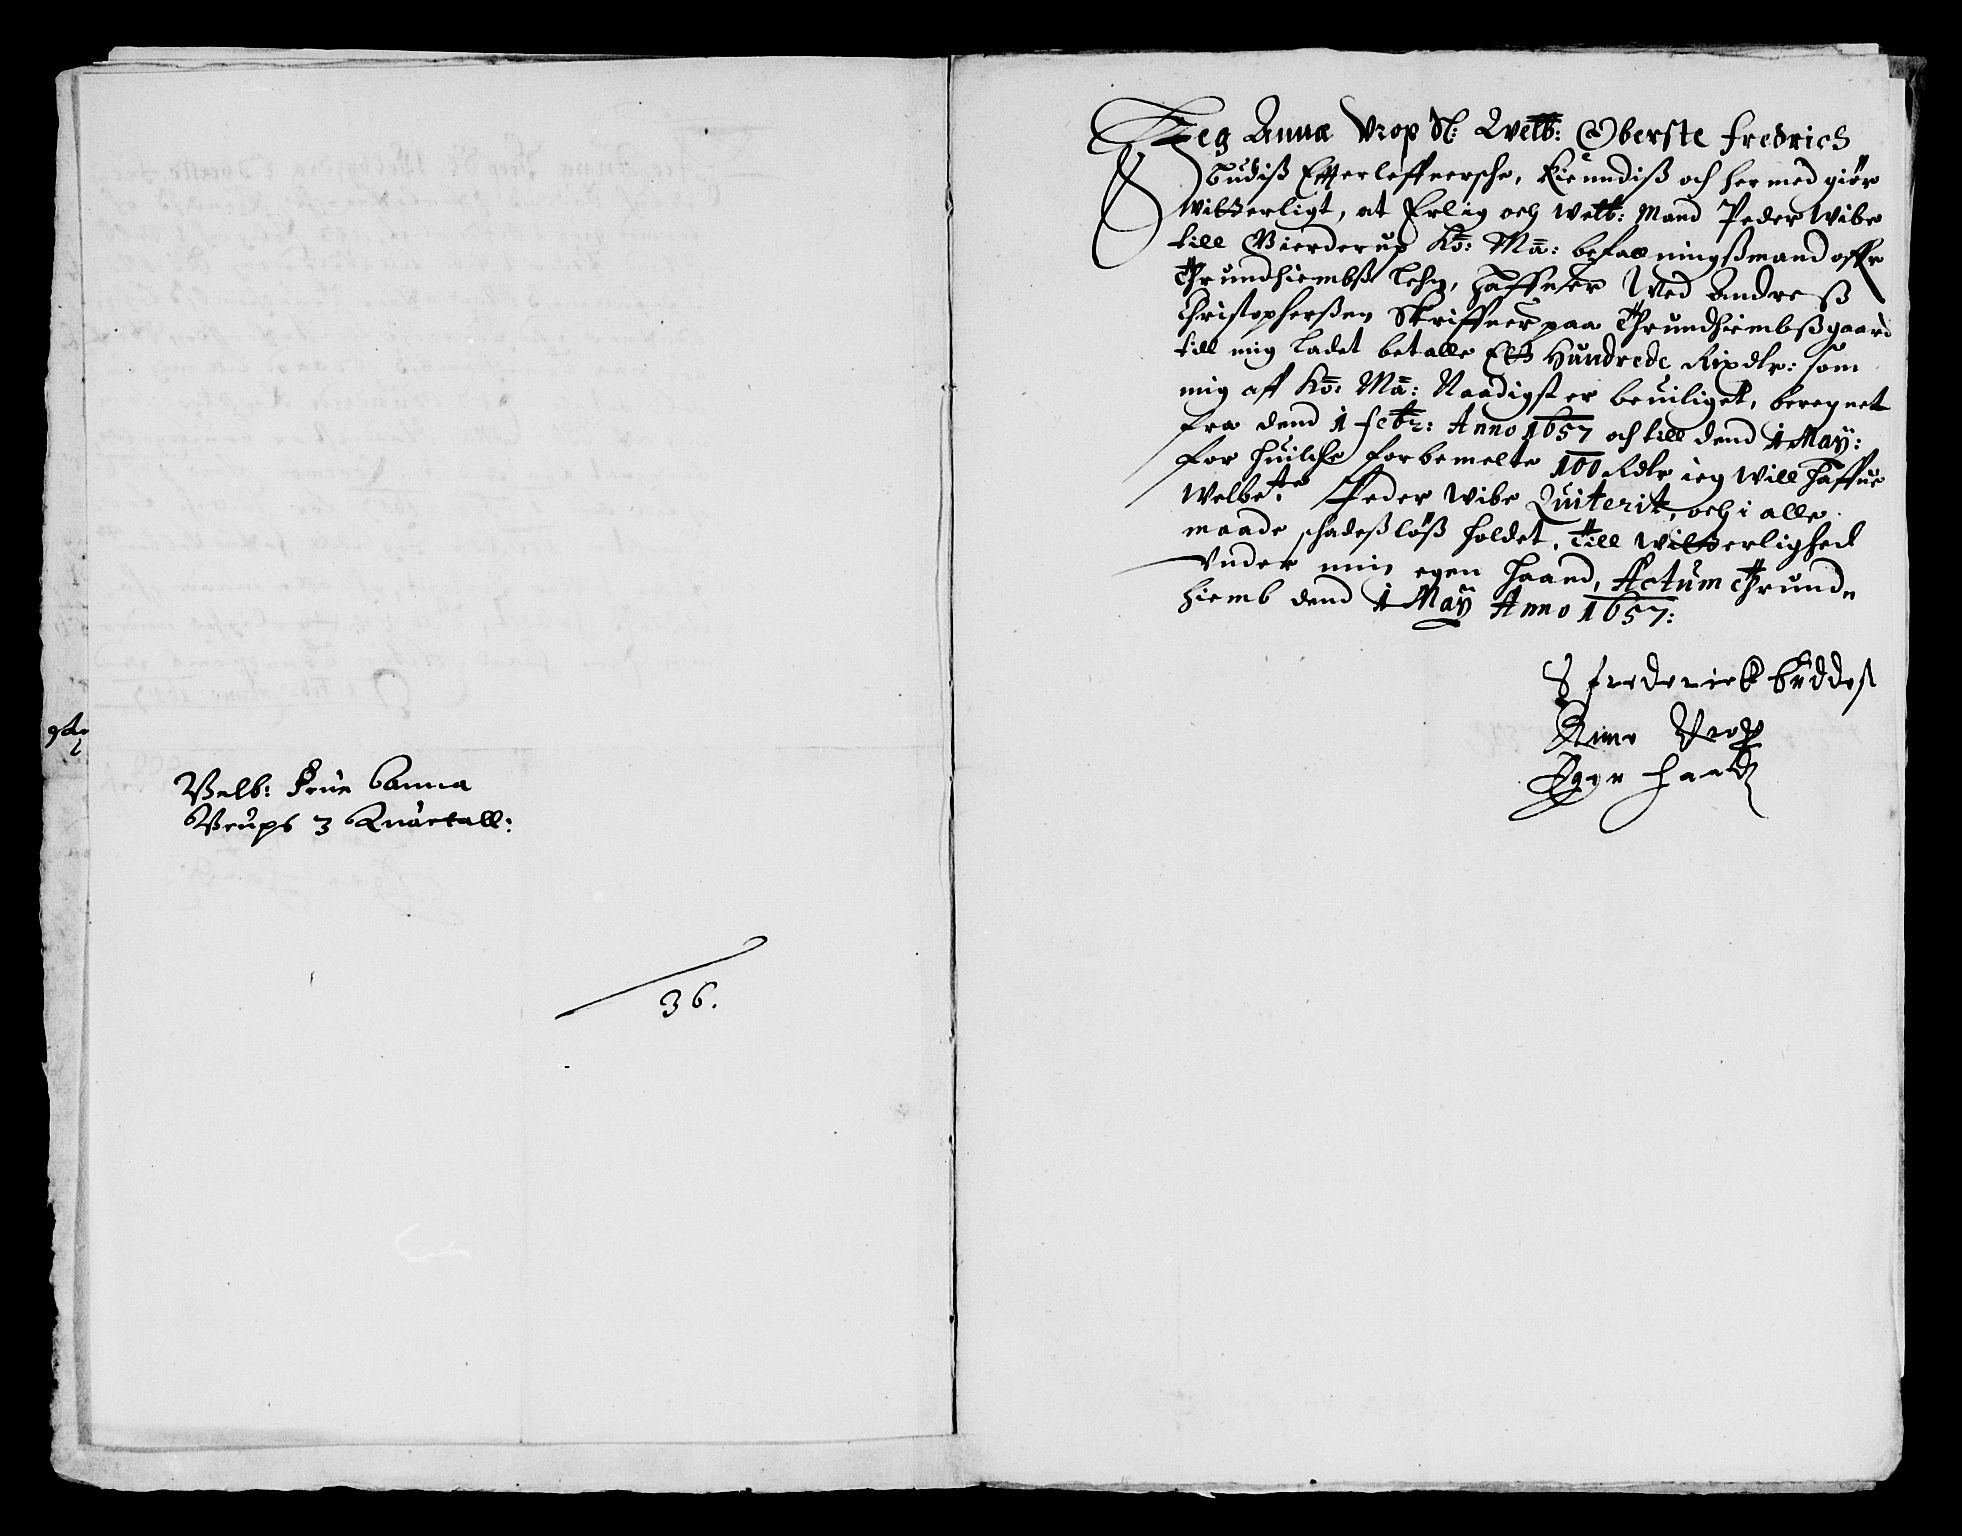 Velb: Frue Anna
Vrups 3 Quartall:
36.
Jeg Anna Vrop Sl: Welb: Oberste Fredrich
Budiß Efterleffuersche, Kiendiß och her med giør
witterligt, at Erlig och Welb: Mand Peder Wibe
till Gierderup Ko: Ma: befallningßmand offr
Thrundhiembß Lehn, haffuer Wed Andreß
Christopherßen Skriffuer paa Thrundhiembßgaard
till mig ladet betalle Ett Hundrede Rixdlr: som
mig aff Ko: Ma: Naadigst er beuiliget, beregnet
fra dend 1 febr: Anno 1657 och till dend 1 May:
for huilche forbemelte 100 Rdlr ieg will haffue
Welbe: Peder Wibe Quiterit, och i alle
maade schadeßløß holdet, Till witterlighed
Vnder min egen haand, Actum Thrund-
hiemb dend 1 May Anno 1657:
S frederick buddes
Anne Vrop
Egen haand